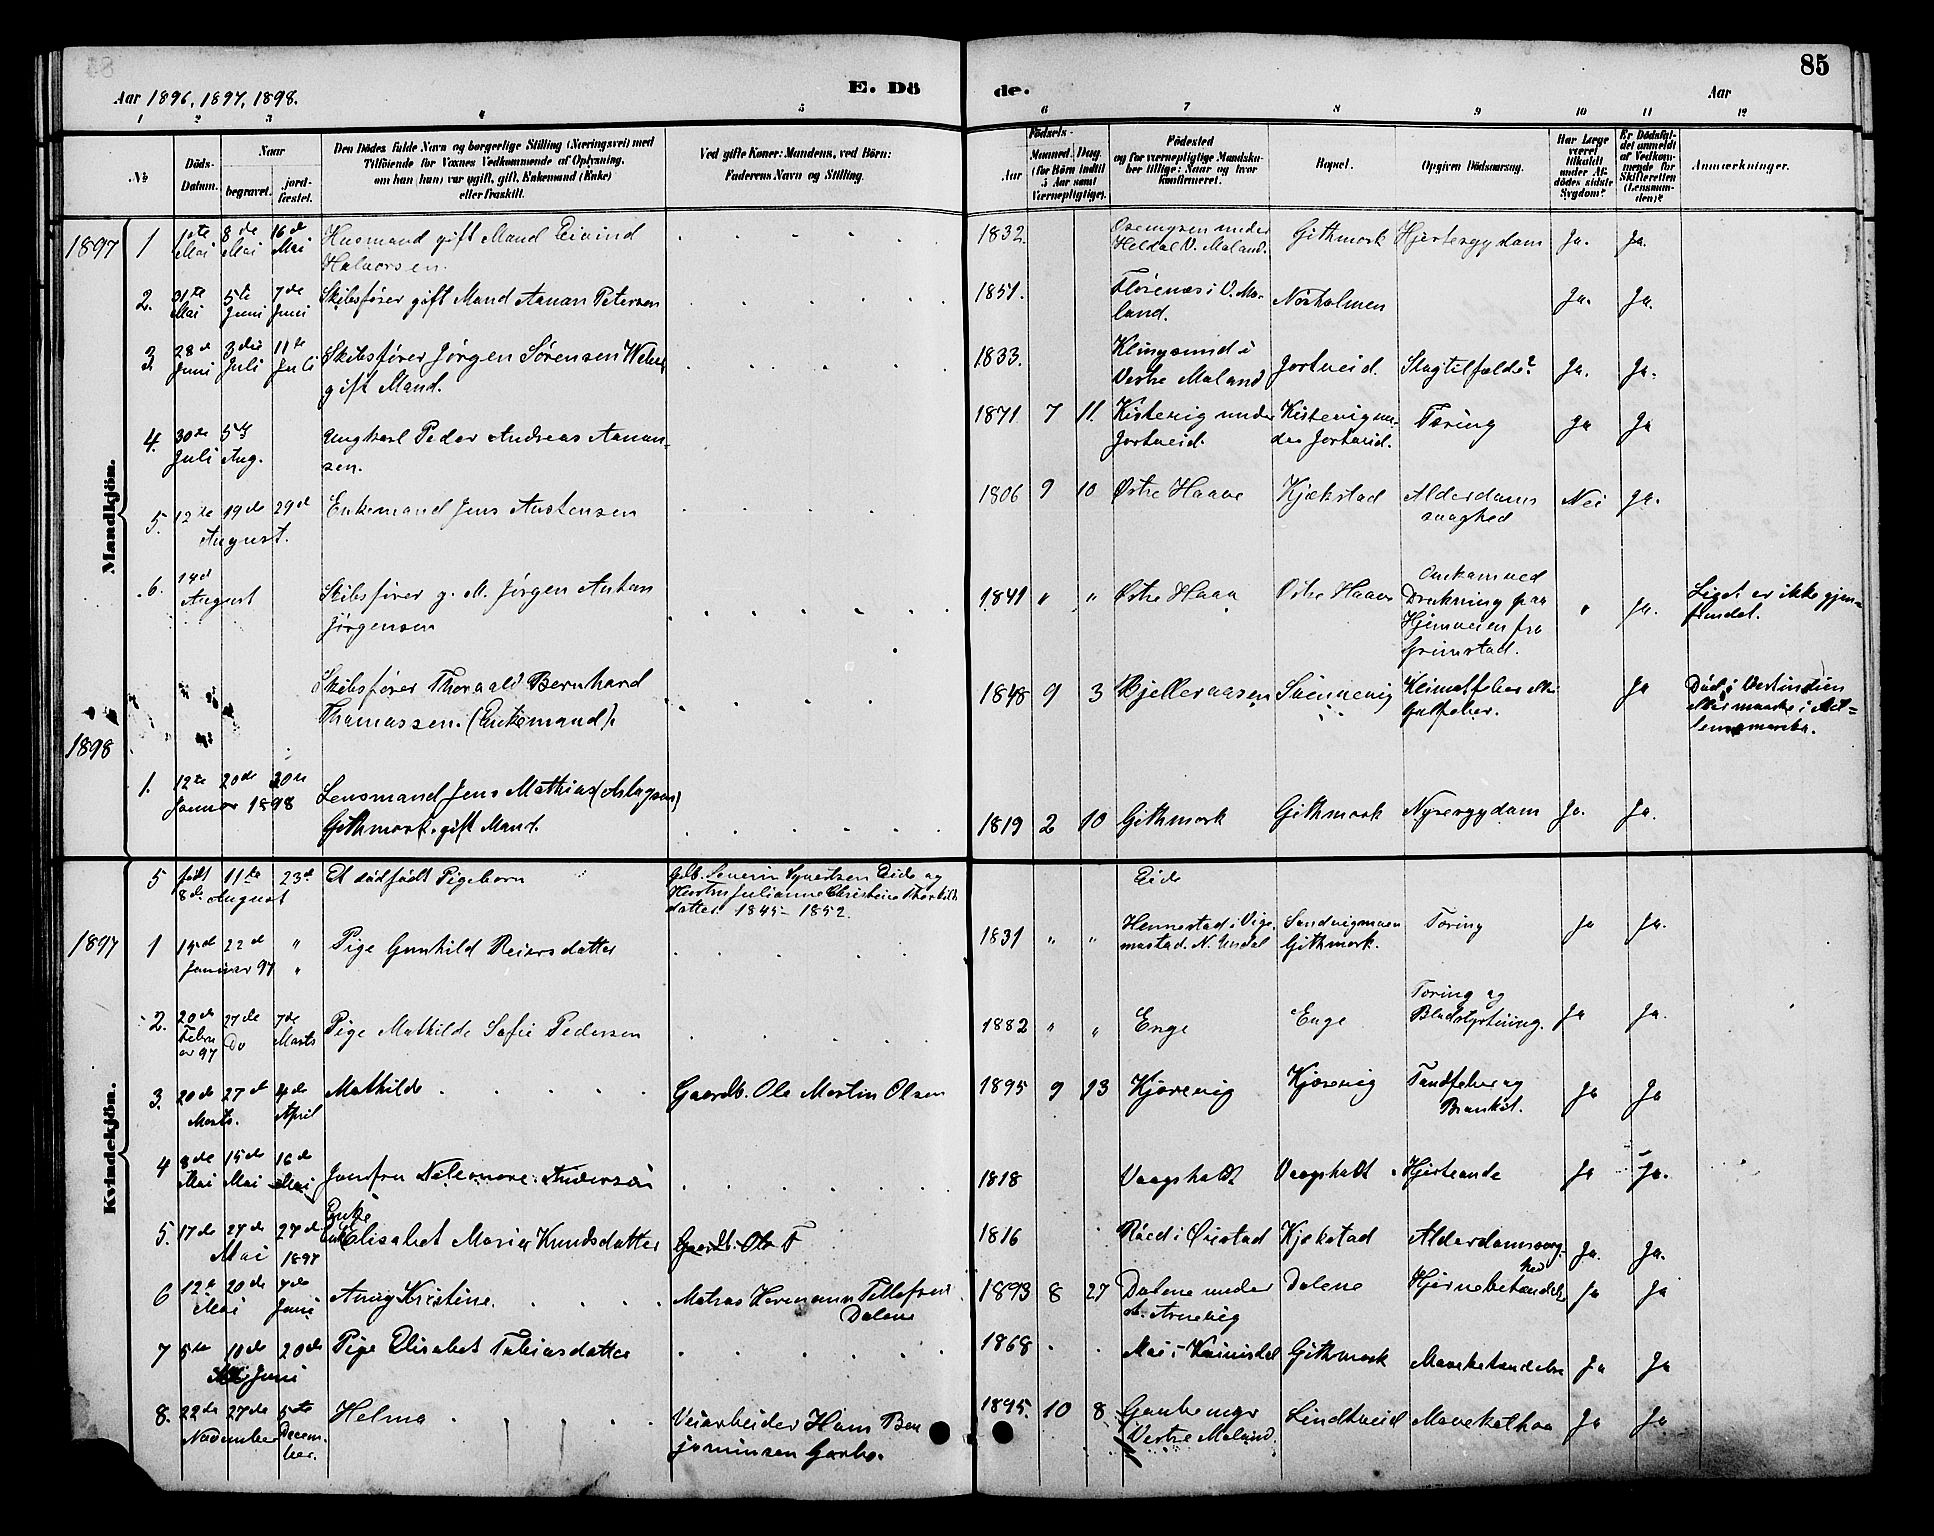 85
Aar 1896, 1897, 1898.
E. Dö
de.
Aar
1 2 3 4 5 6 7 8 9 10 11 12
No
Döds-
Datum.
Naar
begravet.
jord-
fæstet.
Den Dödes fulde Navn og borgerlige Stilling (Næringsvei) med
Tilföiende for Voxnes Vedkommende af Oplysning,
om han (hun) var ugift, gift, Enkemand (Enke)
eller fraskilt.
Ved gifte Koner: Mandens, ved Börn:
Faderens Navn og Stilling.
Födsels-
Aar
Maaned. Dag.
(for Börn indtil
5 Aar samt
Værnepligtige).
Födested
og for værnepligtige Mandska-
ber tillige: Naar og hvor
konfirmeret.
Bopæl.
Opgiven Dödsaarsag.
Har Læge
været
tilkaldt
under Af-
dödes sidste
Sygdom?
Er Dödsfal-
det anmeldt
af Vedkom-
mende for
Skifteretten
(Lensman-
den)?
Anmærkninger.
Mandkjön.
1897 1 1ste Mai 8de Mai 16de Mai Husmand gift Mand Eivind
Halvorsen. 1832. under
Heldal V. Moland. Githmark Hjertesygdom Ja. Ja.
2. 31te Mai 5te Juni 7de Juni Skibsfører gift Mand Aanan Petersen 1851. Flosenæs i V. Mo-
land. Norholmen Ja. Ja.
3. 28de Juni 3die Juli 11te Juli Skibsfører Jørgen Sørensen
gift Mand. 1833. Klingsund i
Vestre Moland Jortveid. Slagtilfælde? Ja. Ja.
4. 30te Juli 5te Aug. Ungkarl Peder Andreas Aanan-
sen. 1871 7 11. Kistevig under
Jortveid. Kistevig un-
der Jortveid. Tæring Ja Ja
5. 12te 19de 29de
August. Enkemand Jens Austensen 1806 9 10 Østre Haave Kjækstad Alderdoms
svaghed Nei Ja.
6. 14de
August Skibsfører g. M. Jørgen Anton
Jørgensen 1841 " " Østre Haave Østre Haave Omkom ved
Drukning paa
Hjemveien fra
Grimstad. " Ja. Liget er ikke gjen-
fundet.
Skibsfører Thorvald Bernhard
Thomassen. (Enkemand). 1848 9 3 Bjelleraasen Svennevig Klimatfeber eller
Gulfeber. Ja Død i Vestindien
eller maaske i Mel-
lemamerika.
1898
1. 12te 20de 30te
Januar 1898 Lensmand Jens Mathias (Aslagsen)
Githmark. gift Mand. 1819 2 10 Githmark Githmark Nyresygdom Ja. Ja.
Kvindekjön.
5 født
8de 11te
August 23de Et dødfødt Pigebarn Gdb. Severin Syvertsen Eide og
Hustru Julianne Christine Thorkils
datter. 1845 - 1852. Eide
1897 1 15de 22de "
Januar 97 " Pige Gunhild Reiersdatter 1831 " " Hennestad i Vige-
mostad. N. Undal Sandvigmoen
Githmark. Tæring Ja Ja.
2. 20de
Febru
ar 97 27de
Do 7de
Marts Pige Mathilde Sofie Pedersen 1882 " " Enge Enge Tæring og
Blodstyrtning. Ja Ja.
3. 20de 27de
Marts. 4de
April Mathilde Gaardb. Ole Martin Olsen 1895 9 13 Kjørevig Kjørevig Tandfeber og
Bronkit. Ja Ja
4 8de
Mai 15de
Mai 16de
Mai Jomfru Nileonore Andersen 1818 Vaagsholt Vaagsholt Hjerteonde Ja Ja.
5. 17de 24de
Mai 27de
1897 Enke
Elisabet Maria Knudsdatter Gaardb. Ole T 1816 Roed i Øiestad Kjækstad Alderdomssvag-
hed Ja. Ja.
6 12te 20de
Mai 7de
Juni Anny Kristine. Matros Hermann Tellefsen
Dalene 1893 8 27 Dalene under
Arnevig Dalene Hjernebetændelse Ja Ja
7 5te 10de 20de
Juni Pige Elisabet Tobiasdatter 1868 Moi i Kvinisdal Githmark Mavebetændelse Ja Ja
8. 22de 27de
November 5te
Decem-
ber. Helma Veiarbeider Hans Ben
jaminsen Garbo. 1895. 10 8
Vestre Moland. Lindtveid Mavekathar Ja Ja